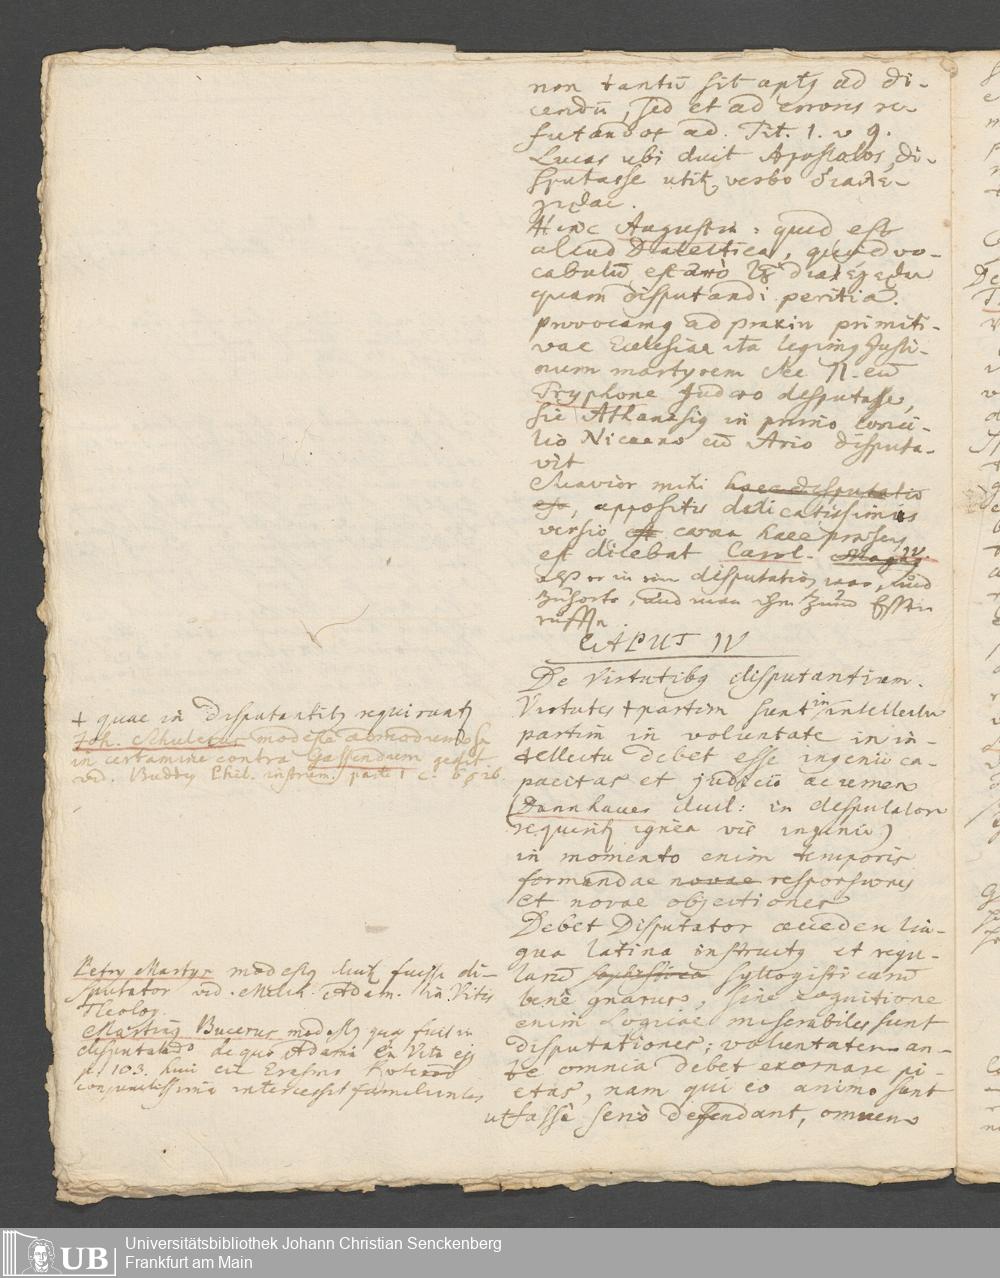 non tantū sit aptꝰ ad di-
cendū, sed et ad errores re
futandos ad. Tit. 1. v 9.
Lucas ubi dicit Apostolos di-
sputasse utitꝛ verbo διαλέ-
γεϑαι.
Hinc Augustin: quid est
aliud Dialectica, quod vo-
cabulū est ἀπὸ τȣ̃ διαλέγεϑαι
quam disputandi peritia.
provocamꝰ ad praxin primiti-
vae Ecclesiae ita legimꝰ Justi-
num martyrem
Tryphone Judaeo disputasse,
sic Athanasiꝰ in primo conci-
lio Nicaeno cū Ario disputa-
vit
Suavior mihi haec disputatio
est, appositis delicatissimis
est dicebat Carol. IV.
als er in ein disputation war, und
zuhorte, und man ihn zum Essen
ruffte.
CAPUT IV
De Virtutibꝰ disputantium.
Virtutes + partim sunt in intellectu
partim in voluntate in in-
tellectu debet esse ingenii ca-
pacitas et judicii acumen
(Dannhauer dicit: in disputatore
requiritꝛ ignea vis ingenii)
in momento enim temporis
formandae novae responsiones
et novae objectiones
Debet Disputator accedere lin-
gua latina instructꝰ et regu-
larū syllogisticarū
bene gnarus, sine cognitione
enim Logicae miserabiles sunt
disputationes; voluntatem an-
te omnia debet exornare pi-
etas, nam qui eo animo sunt
ut falsa serio defendant, omnem
+ quae in disputantibꝰ requiruntꝛ
modeste
in certamine contra Gassendum gessit
vid. Buddeꝰ Phil. instrum. parte 1 c. 6 § 26.
Petrꝰ Martyr modestꝰ dicitꝛ fuisse di-
sputator vid. Melch. Adam. in Vitis
Theolog.
Martinꝰ Bucerus modestꝰ quoqꝫ fuit in
disputando de quo Adami in Vita ejꝰ
p. 103. huic cū Erasmo
conjunctissima intercessit
Universitätsbibliothek Johann Christian Senckenberg
Frankfurt am Main
UB